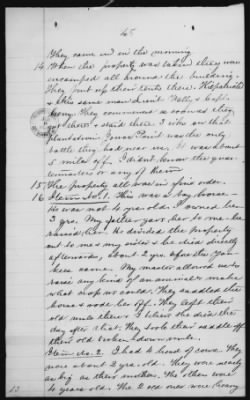 48
They came in in the morning
14 When the property was taken they were
encamped all around the building.
They put up their tents there. Kilpatrick
& his same man didn't
They commenced as soon as they
got there & staid there. I was on that
plantation Jones' Point was the only
battle they had near us. It was about
5 miles off. I didn't know the quar-
termasters or any of them
15 The property all was in fine order.
16 Item No. 1. This was a bay horse.
He was not 4 years old. I owned him
3 yrs. My father gave her to me be-
He divided the property
out to me & my sisters & he died directly
afterwards, about 2 yrs. before the Yan-
kees came. My master allowed us to
raise any kind of animal & make
what crop we could. They saddled the
horse & rode her off. They left their
old mule there. I believe she died the
day after that. They took their saddle off
their old broken down mule.
Item No. 2. I had 4 head of cows. They
were about 3 yrs. old. They were nearly
as big as their mothers. The others were
4 years old. The 2 old ones were heavy